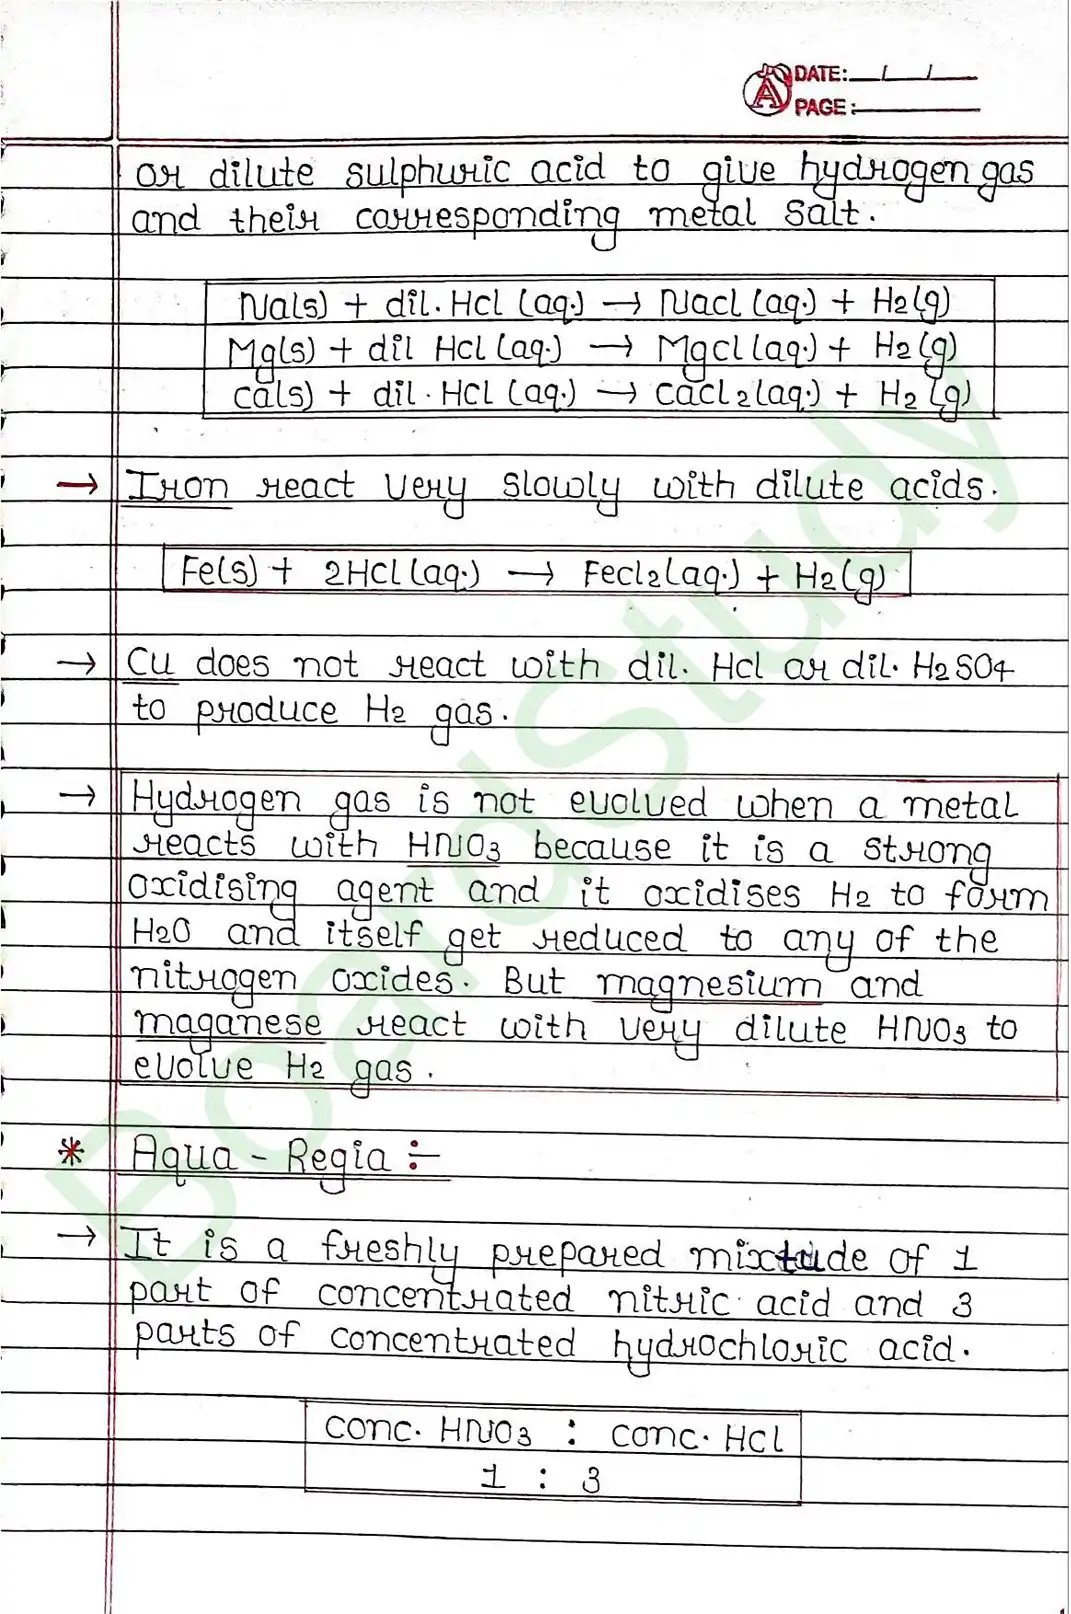 DATE: / /
PAGE:
or dilute sulphuric acid to give hydrogen gas
and their corresponding metal salt.
Na(s) + dil. Hcl (aq.) → Nacl (aq.) + H2(g)
Mg(s) + dil Hcl (aq.) → Mgcl (aq.) + H2(g)
ca(s) + dil. Hcl (aq.) → cacl2(aq.) + H2(g)
→ Iron react very slowly with dilute acids.
Fe(s) + 2Hcl (aq.) → Fecl2(aq.) + H2(g)
→ Cu does not react with dil. Hcl or dil. H2SO4
to produce H2 gas.
→ Hydrogen gas is not evolved when a metal
reacts with HNO3 because it is a strong
oxidising agent and it oxidises H2 to form
H2O and itself get reduced to any of the
nitrogen oxides. But magnesium and
maganese react with very dilute HNO3 to
evolve H2 gas.
* Aqua - Regia :-
→ It is a freshly prepared mixtude of 1
part of concentrated nitric acid and 3
parts of concentrated hydrochloric acid.
conc. HNO3 : conc. Hcl
1 : 3
BoardStudy